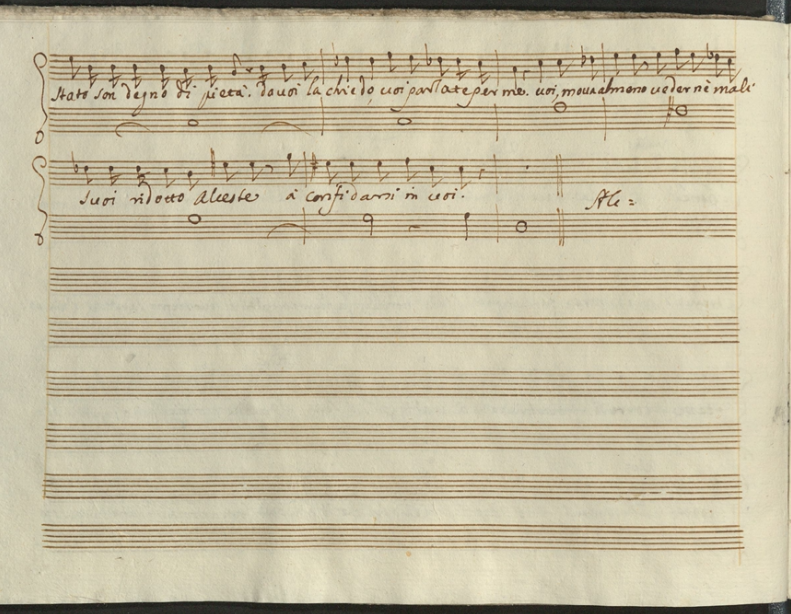 stato son degno di pietà. da voi la chiedo, voi parlate per me. voi, mova almeno veder ne mali
suoi ridotto Alceste à confidarsi in voi. Alc=